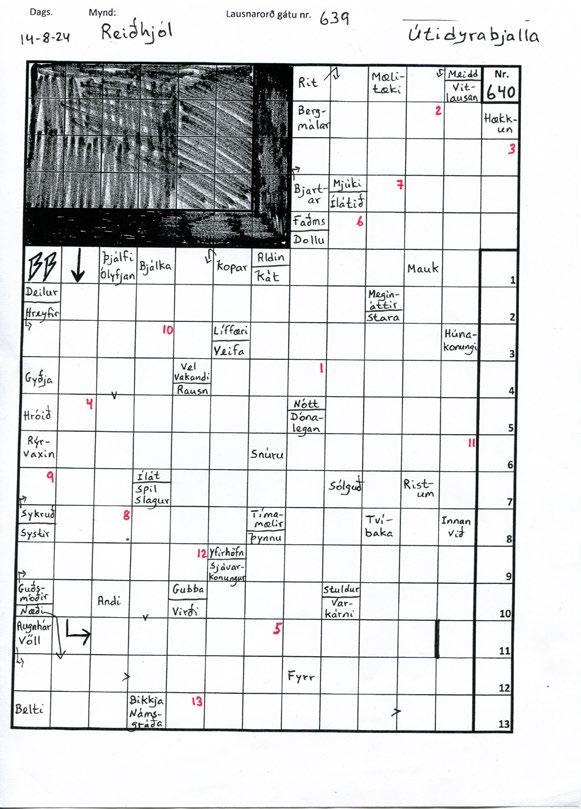 Dags. Mynd: Lausnarorð gátu nr. 639
14-8-24 Reiðhjól Útidyrabjalla
Rit
Mæli-
tæki
Meidd
Vit-
lausan
Nr.
640
Berg-
málar
2
Hækk-
un
3
Bjart-
ar
Mjúki
Ílátið
7
Faðms
Dollu
6
BB
Þjálfi
Ólyfjan
Bjálka
Kopar
Aldin
Kát
Mauk
1
Deilur
Hreyfir
Megin-
áttir
Stara
2
10
Líffæri
Veifa
Húna-
konungi
3
Gyðja
Vel
vakandi
Rausn
1
4
Hróið
4
Nótt
Dóna-
legan
5
Rýr-
vaxin
Snúru
11
6
9
Ílát
Spil
Slagur
Sólguð
Rist-
um
7
Sykruð
Systir
8
Tíma-
mælir
Þynnu
Tví-
baka
Innan
við
8
12
Yfirhöfn
Sjávar-
konungur
9
Guðs-
móðir
Næði
Andi
Gubba
Virði
Stuldur
Var-
kárni
10
Augnhár
Völl
5
11
Fyrr
12
Belti
Bikkja
Náms-
gráða
13
13